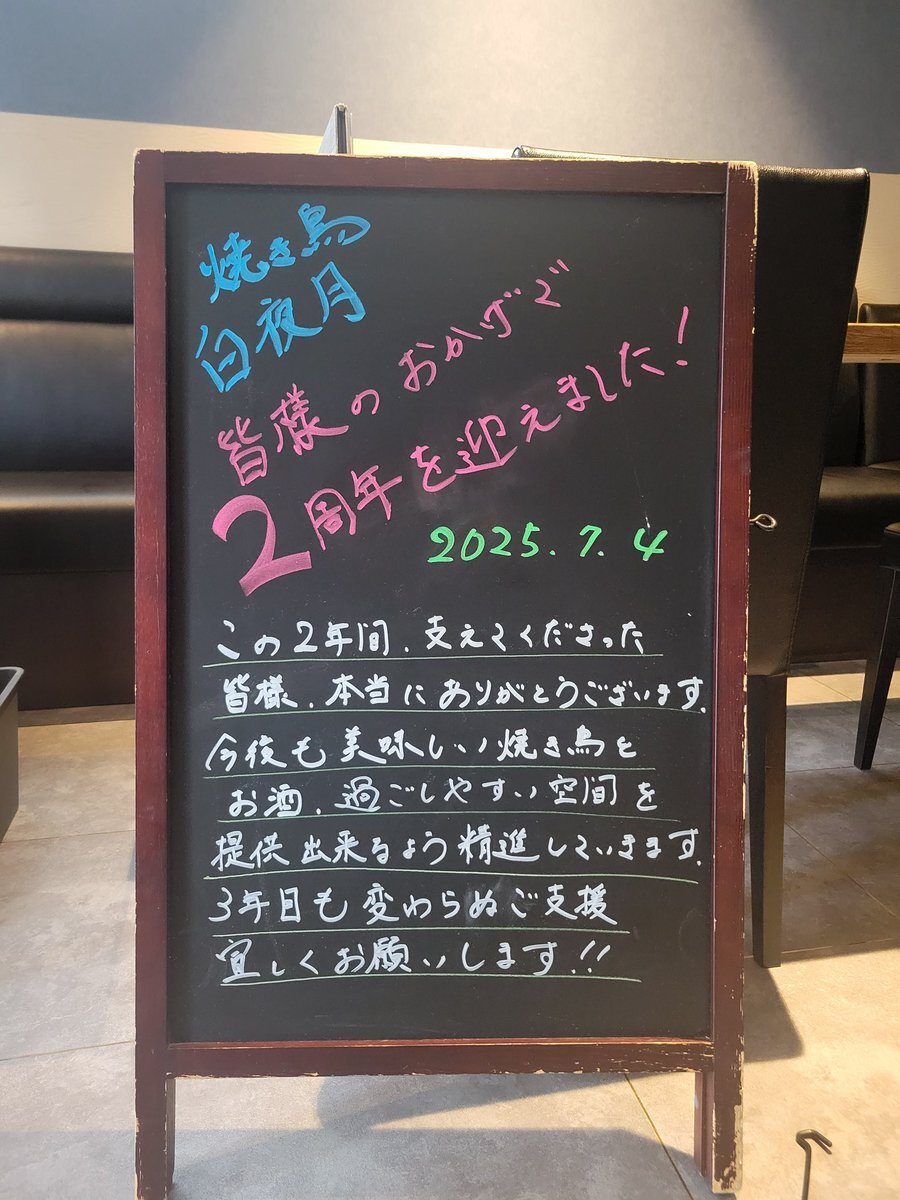 焼き鳥
白夜月
皆様のおかげで
2周年を迎えました!
2025.7.4
この2年間、支えてくださった
皆様、本当にありがとうございます。
今後も美味しい焼き鳥と
お酒、過ごしやすい空間を
提供出来るよう精進していきます。
3年目も変わらぬご支援
宜しくお願いします!!